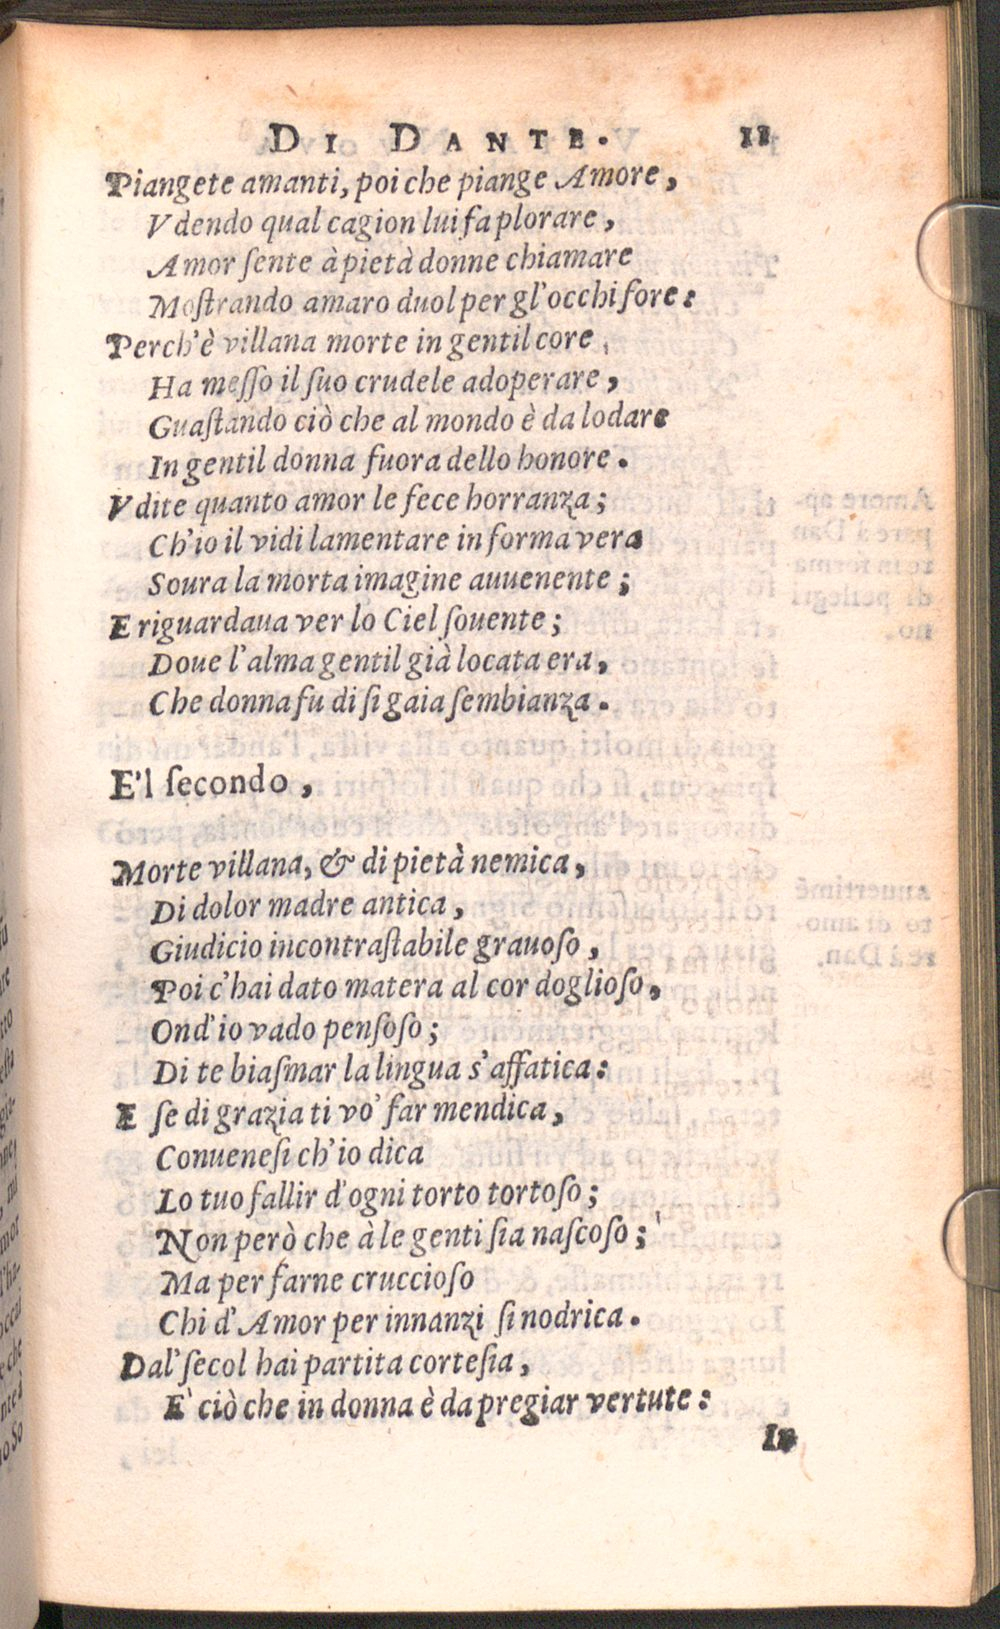 DI DANTE. 11
Piangete amanti, poi che piange Amore,
Vdendo qual cagion lui fa plorare,
Amor ſente à pietà donne chiamare
Moſtrando amaro duol per gl'occhi fore:
Perch'è villana morte in gentil core,
Ha meſſo il ſuo crudele adoperare,
Guaſtando ciò che al mondo è da lodare
In gentil donna fuora dello honore.
Vdite quanto amor le fece horranza;
Ch'io il vidi lamentare in forma vera
Soura la morta imagine auuenente;
E riguardaua ver lo Ciel ſouente;
Doue l'alma gentil già locata era,
Che donna fu di ſi gaia ſembianza.
E'l ſecondo,
Morte villana, & di pietà nemica,
Di dolor madre antica,
Giudicio incontraſtabile grauoſo,
Poi c'hai dato matera al cor doglioſo,
Ond'io vado penſoſo;
Di te biaſmar la lingua s'affatica:
E ſe di grazia ti vo' far mendica,
Conueneſi ch'io dica
Lo tuo fallir d'ogni torto tortoſo;
Non però che à le genti ſia naſcoſo;
Ma per farne cruccioſo
Chi d'Amor per innanzi ſi nodrica.
Dal' ſecol hai partita corteſia,
E' ciò che in donna è da pregiar vertute: